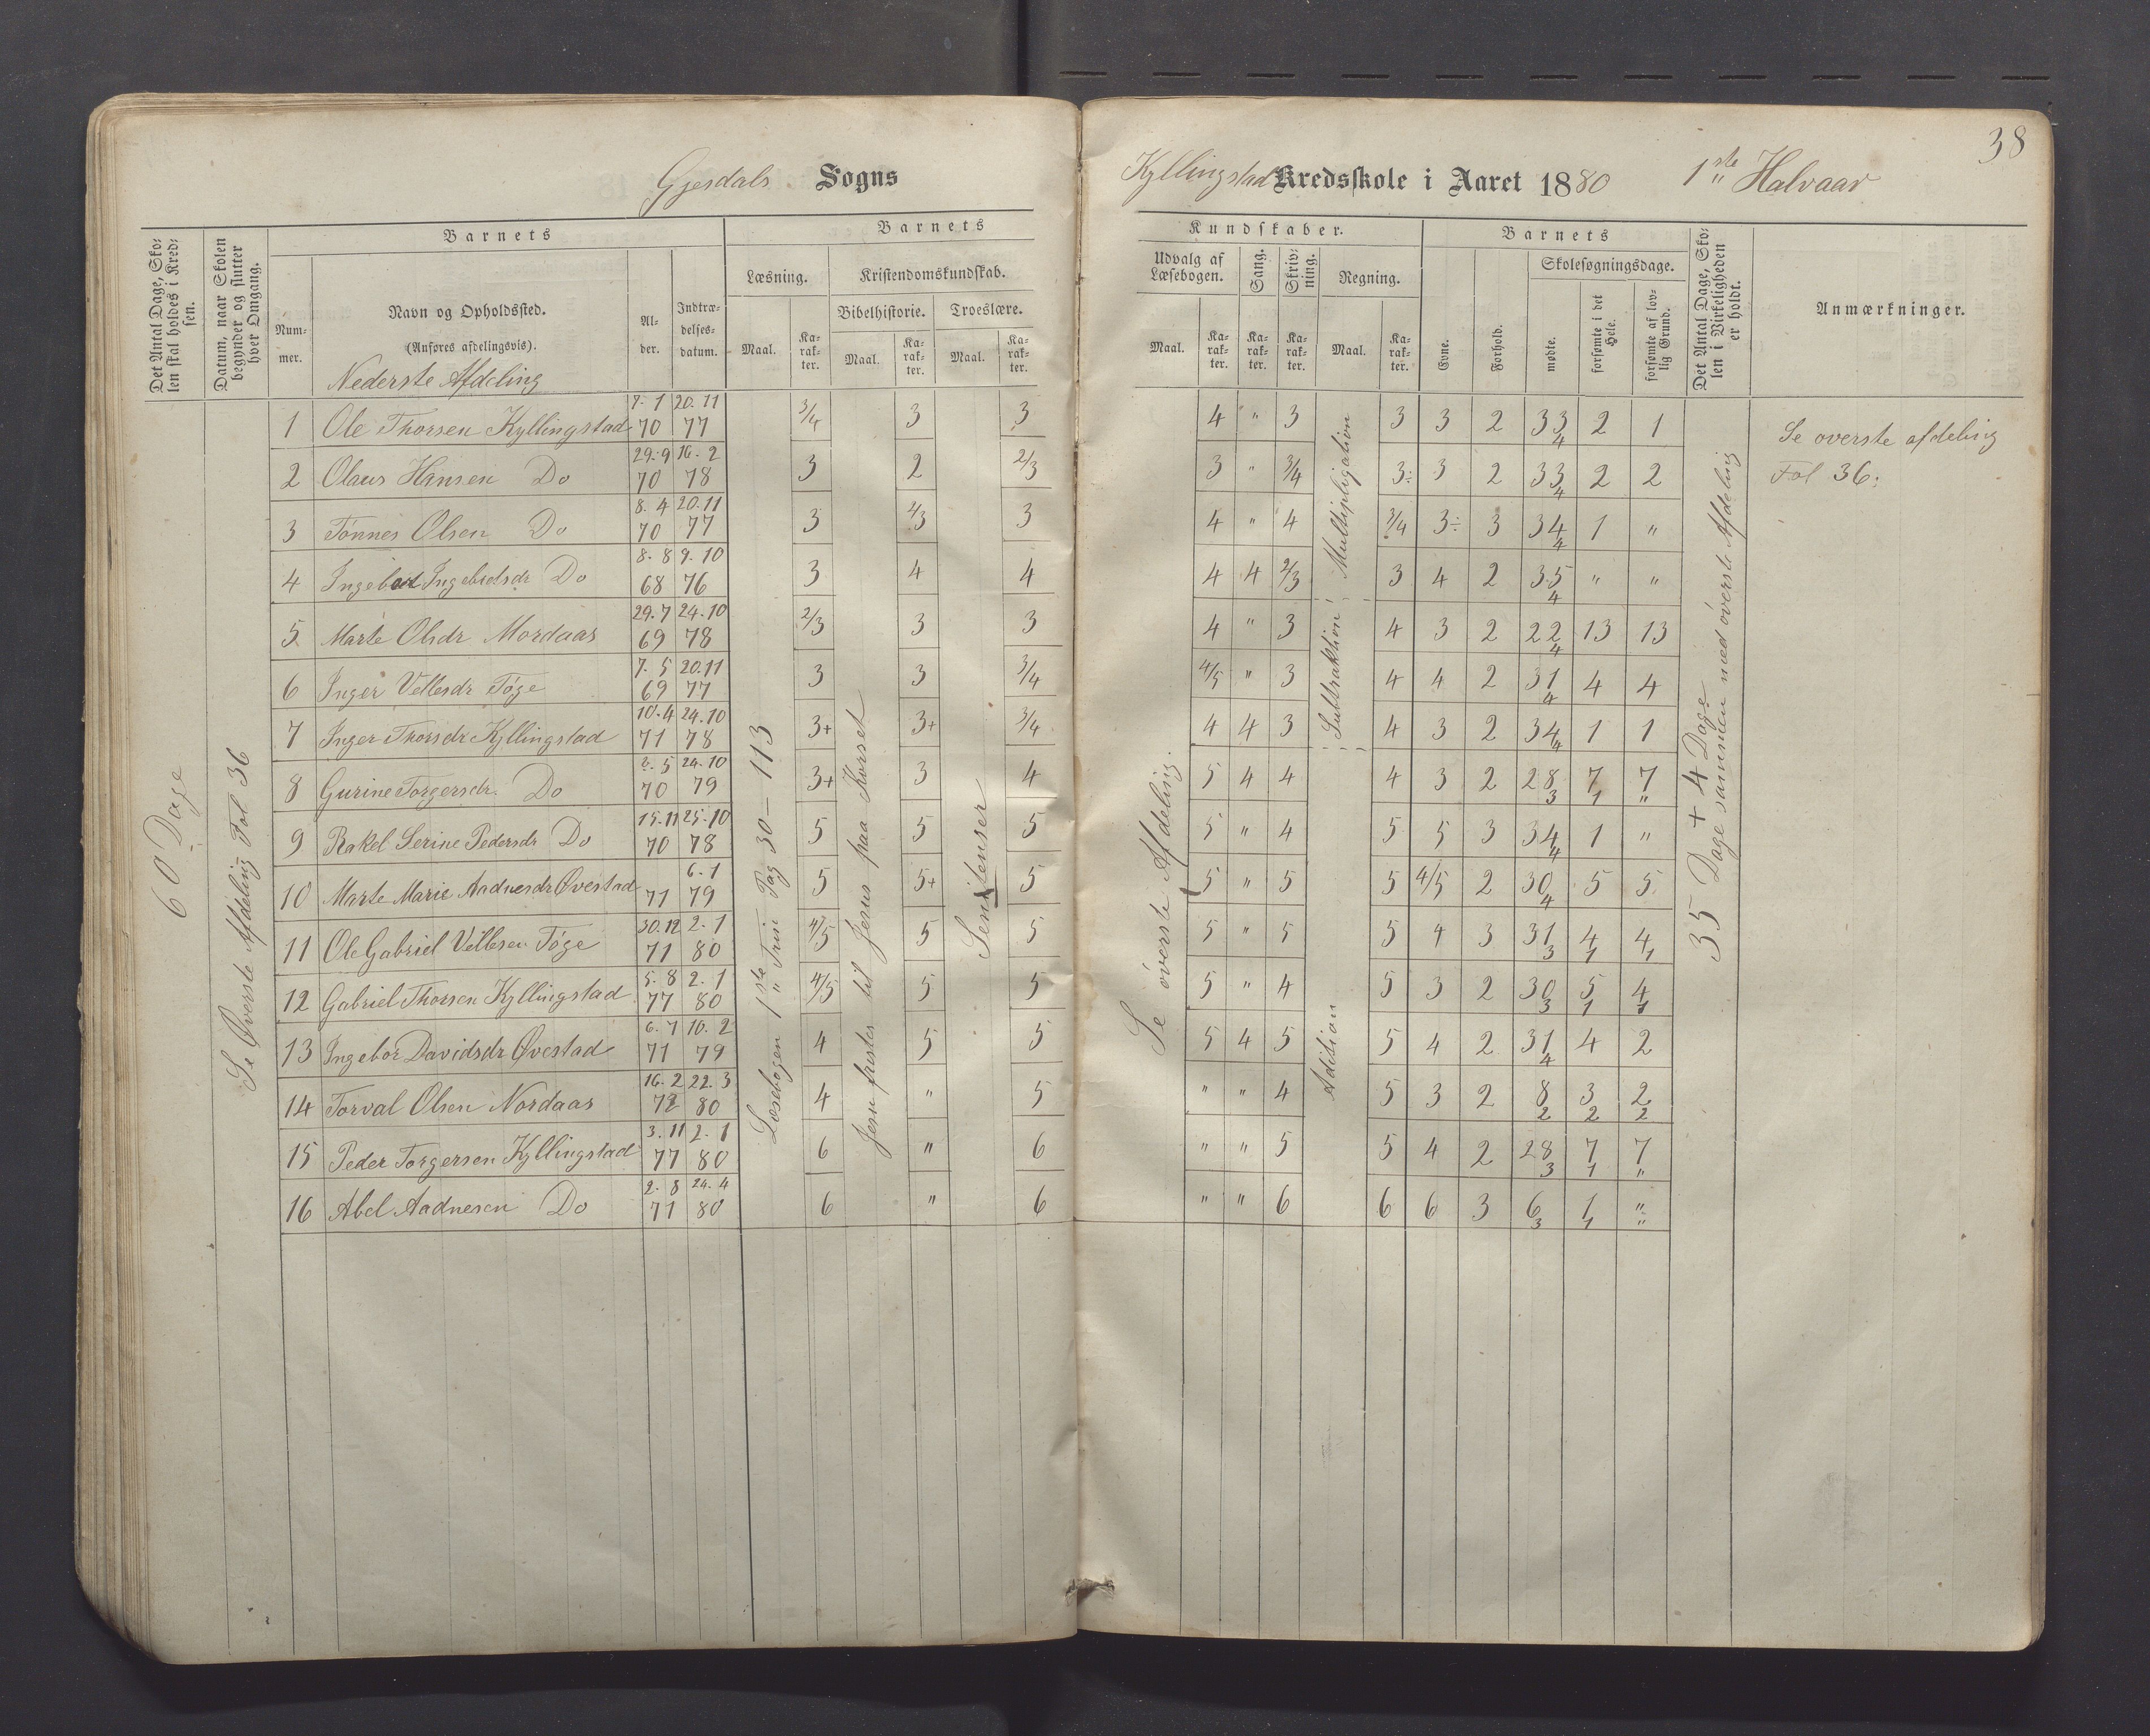 38
Gjesdals Sogns Kyllingstad Kredsskole i Aaret 1880 1ste Halvaar
Det Antal Dage, Skolen skal holdes i Kredsen.
Datum, naar Skolen begynder og slutter hver Omgang.
Barnets
Nummer.
Navn og Opholdssted.
(Anføres afdelingsvis).
Alder.
Indtrædelsesdatum.
Barnets Kundskaber.
Læsning.
Maal.
Karakter.
Kristendomskundskab.
Bibelhistorie.
Maal.
Karakter.
Troeslære.
Maal.
Karakter.
Udvalg af Læsebogen.
Maal.
Karakter.
Sang.
Karakter.
Skrivning.
Karakter.
Regning.
Maal.
Karakter.
Barnets
Evne.
Forhold.
Skolesøgningsdage.
mødte.
forsømte i det Hele.
forsømte af lovlig Grund.
Det Antal Dage, Skolen i Virkeligheden er holdt.
Anmærkninger.
Nederste Afdeling
60 Dage
Se Øverste Afdeling Fol 36
Læsebogen 1ste Trin Pag 30 – 113
Jesu fristes til Jesus paa Korset
Sententenser
Se øverste Afdeling.
Multipligation
Subtraktion
Adition
35 + 4 Dage
Dage sammen med øverste Afdeling
Se overste afdeling
Fol 36.
1 Ole Thorsen Kyllingstad 7.1 70 20.11 77 3/4 3 3 4 " 3 3 3 2 33 4 2 1
2 Olaus Hansen Do 29.9 70 16.2 78 3 2 2/3 3 " 3/4 3÷ 3 2 33 4 2 2
3 Tønnes Olsen Do 8.4 70 20.11 77 3 2/3 3 4 " 4 3/4 3÷ 3 34 4 1 "
4 Ingebor Ingebretsdr Do 8.8 68 9.10 76 3 4 4 4 4 2/3 3 4 2 35 4 " "
5 Marte Olsdr Mordaas 29.7 69 24.10 78 2/3 3 3 4 " 3 4 3 2 22 4 13 13
6 Inger Vellesdr Tøge 7.5 69 20.11 77 3 3 3/4 4/5 " 3 4 4 2 31 4 4 4
7 Inger Thorsdr Kyllingstad 10.4 71 24.10 78 3+ 3+ 3/4 4 4 3 4 3 2 34 4 1 1
8 Gurine Torgersdr. Do 2.5 70 24.10 79 3+ 3 4 5 4 4 4 3 2 28 3 7 1 7 "
9 Rakel Serine Pedersdr Do 15.11 70 25.10 78 5 5 5 5 " 4 5 5 3 34 4 1 "
10 Marte Marie Aadnesdr Øvestad 71 6.1 79 5 5+ 5 5 " 5 5 4/5 2 30 4 5 5
11 Ole Gabriel Vellesen Tøge 30.12 71 2.1 80 4/5 5 5 5 " 5 5 4 3 31 3 4 1 4 1
12 Gabriel Thorsen Kyllingstad 5.8 77 2.1 80 4/5 5 5 5 " 4 5 3 2 30 3 5 1 4 1
13 Ingebor Davidsdr Øvestad 6.7 71 10.2 79 4 5 5 5 4 5 5 4 2 31 4 4 2
14 Torval Olsen Nordaas 16.2 72 22.3 80 4 " 5 " " 4 5 3 2 8 2 3 2 2 2
15 Peder Torgersen Kyllingstad 3.11 77 2.1 80 6 " 6 " " 5 5 4 2 28 3 7 1 7 "
16 Abel Aadnesen Do 2.8 71 24.4 80 6 " 6 " " 6 6 6 3 6 3 1 1 " "